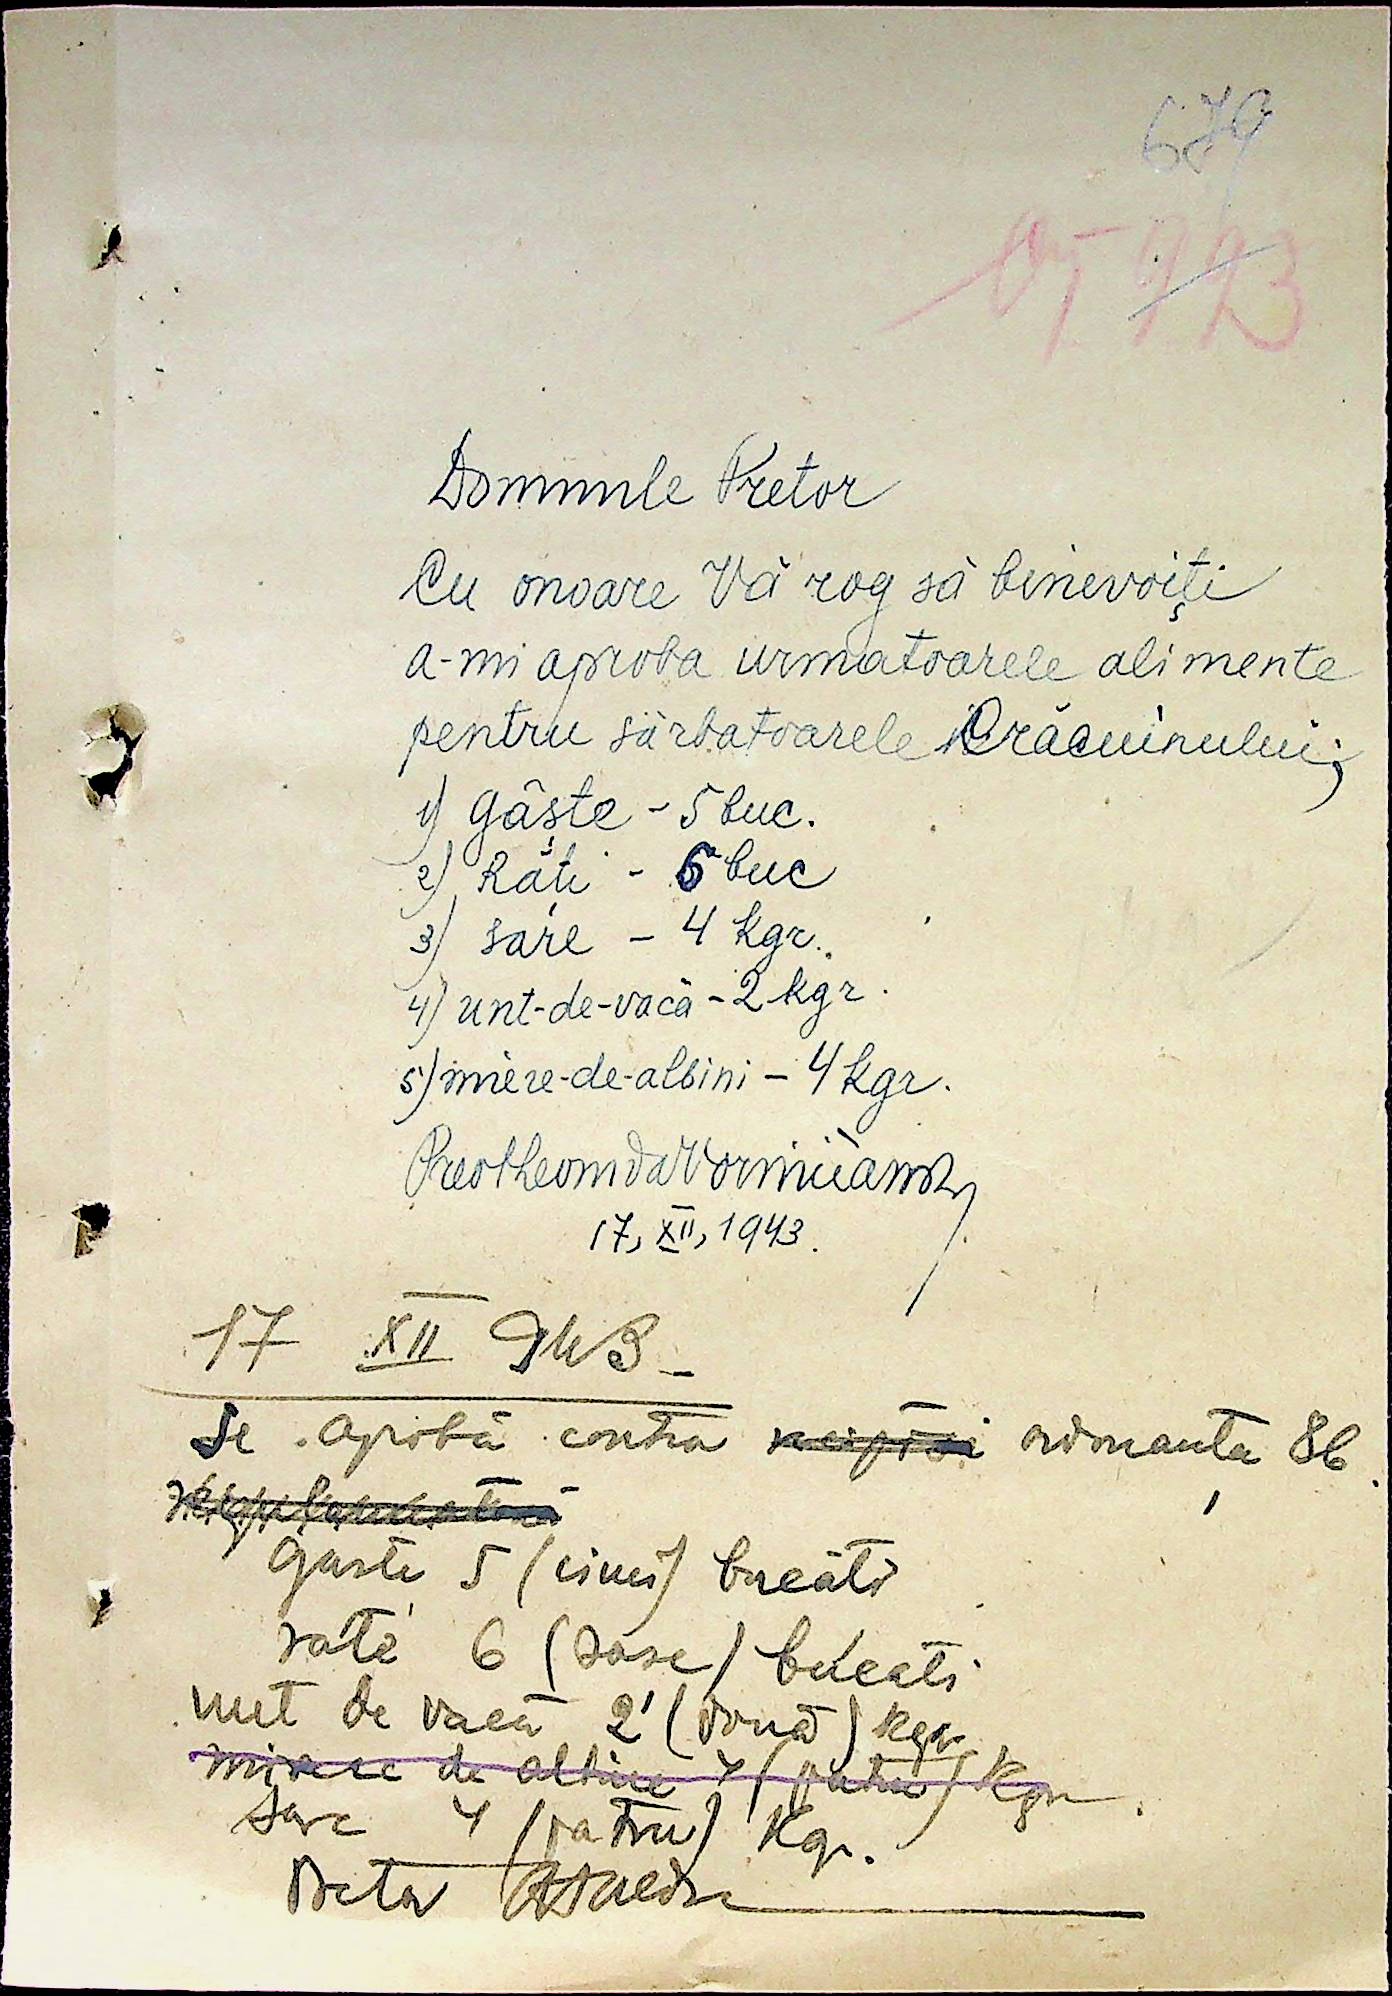 679
993
Domnule Pretor
Cu onoare Vă rog să binevoiți
a-mi aproba urmatoarele alimente
pentru sărbatoarele Crăcuinului;
1) Gâște - 5 buc.
2) Răți - 6 buc
3) sare - 4 kgr.
4) unt-de-vacă - 2 kgr.
5) miere-de-albini - 4 kgr.
17, XII, 1943.
17 XII 943
Se aprobă contra ordonanța 86
Gaste 5 (cinci) bucăti
rate 6 (sase) bucati
unt de vacă 2 (două) kgr
miere de albine 4 (patru) Kgr.
Sare 4 (patru) Kgr.
Pretor